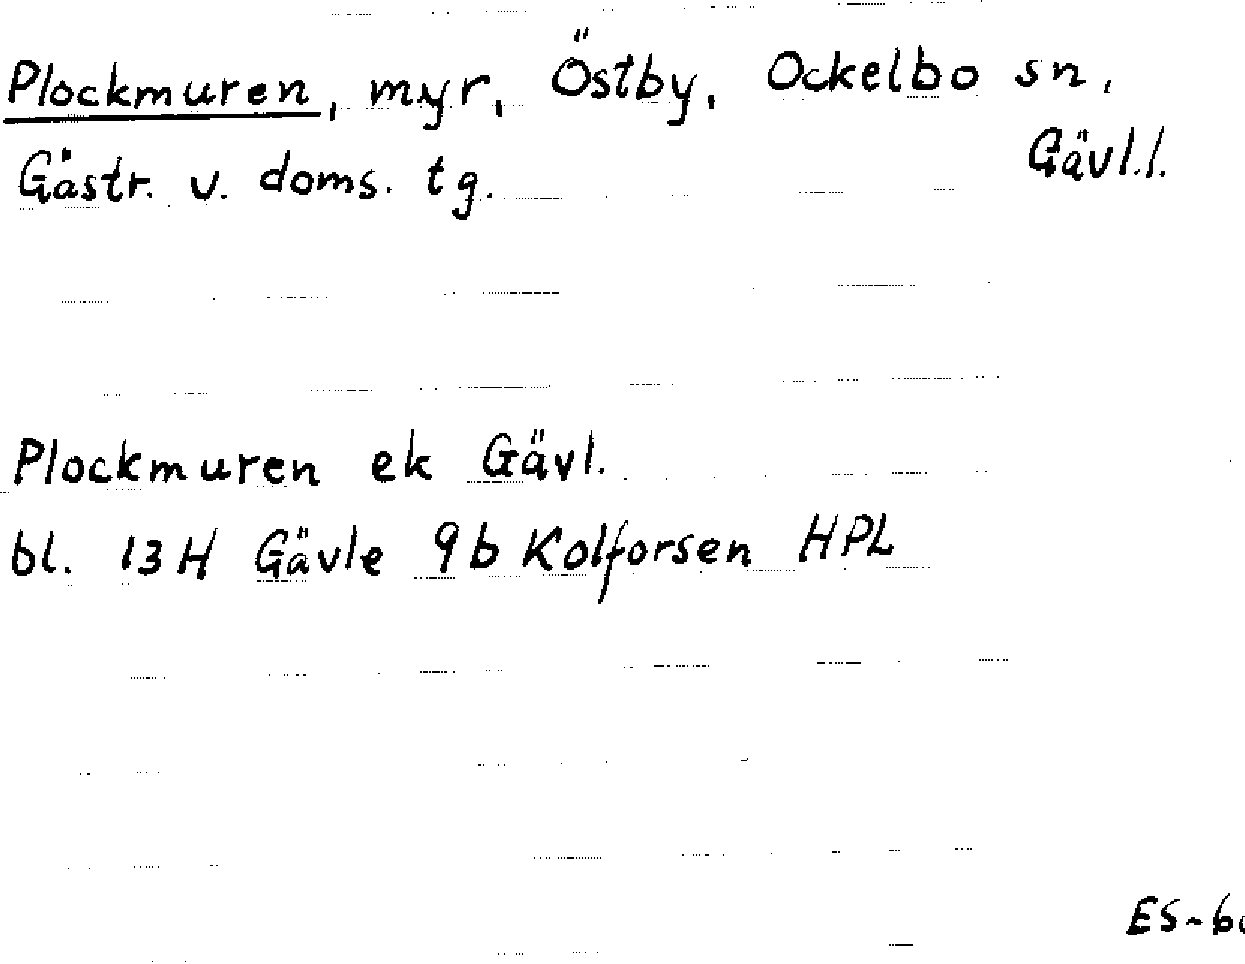 Plockmuren, myr, Östby, Ockelbo sn,
Gästr. v. doms. tg. Gävl.l.
Plockmuren ek Gävl.
bl. 13H Gävle 9b Kolforsen HPL